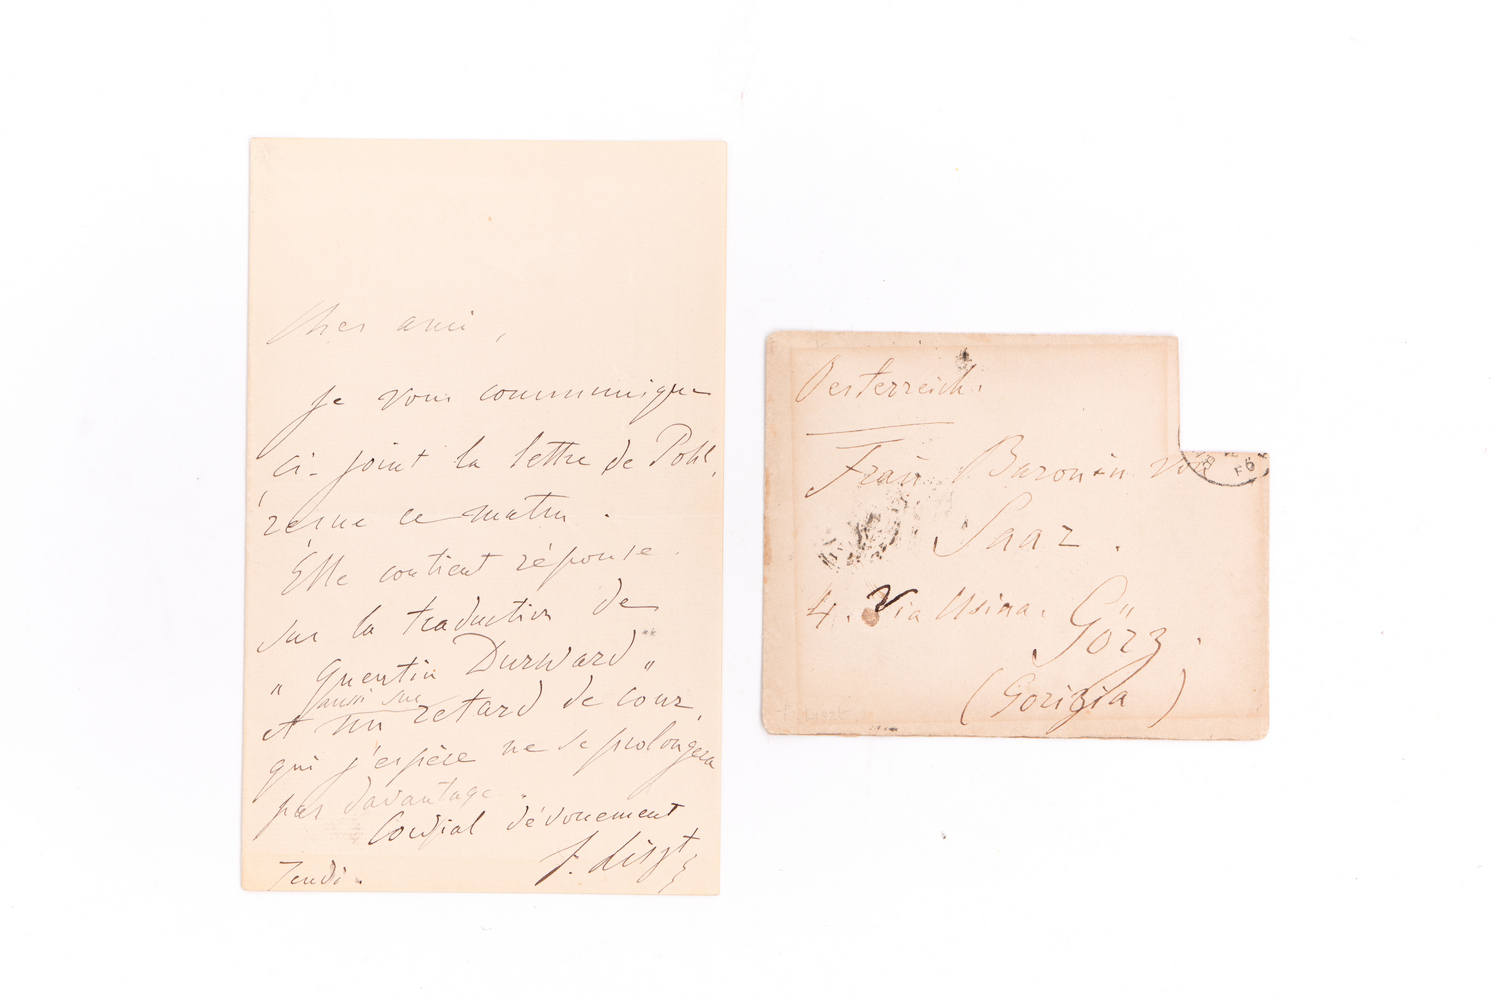 Cher ami,
Je vous communique
ci-joint la lettre de Pohl,
reçue ce matin.
Elle contient réponse
sur la traduction de
"Quentin Durward"
aussi sur
et un retard de cour,
qui j'espère ne se prolongera
pas davantage.
Cordial dévouement
F. Liszt
Jeudi.
Oesterreich.
Frau Baronin von
Saaz.
4. Via Usina. Görz.
(Gorizia)